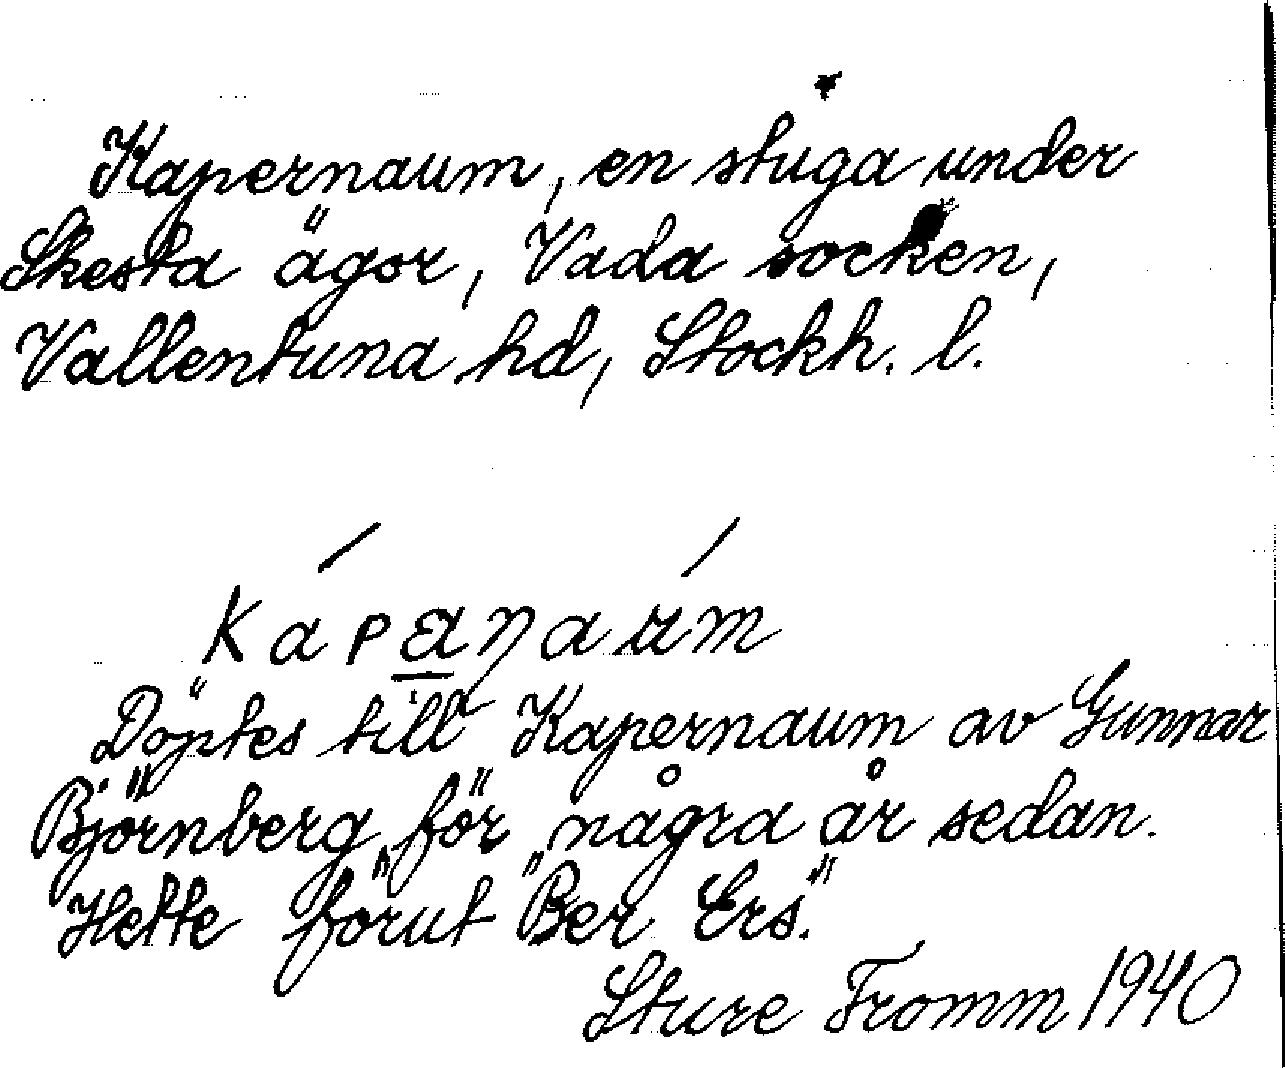 Kapernaum, en stuga under
Skesta ägor, Vada socken,
Vallentuna hd, Stockh. l.
Döptes till Kapernaum av Gunnar
Björnberg för några år sedan.
Hette förut "Ber Ers."
Sture Fromm 1940